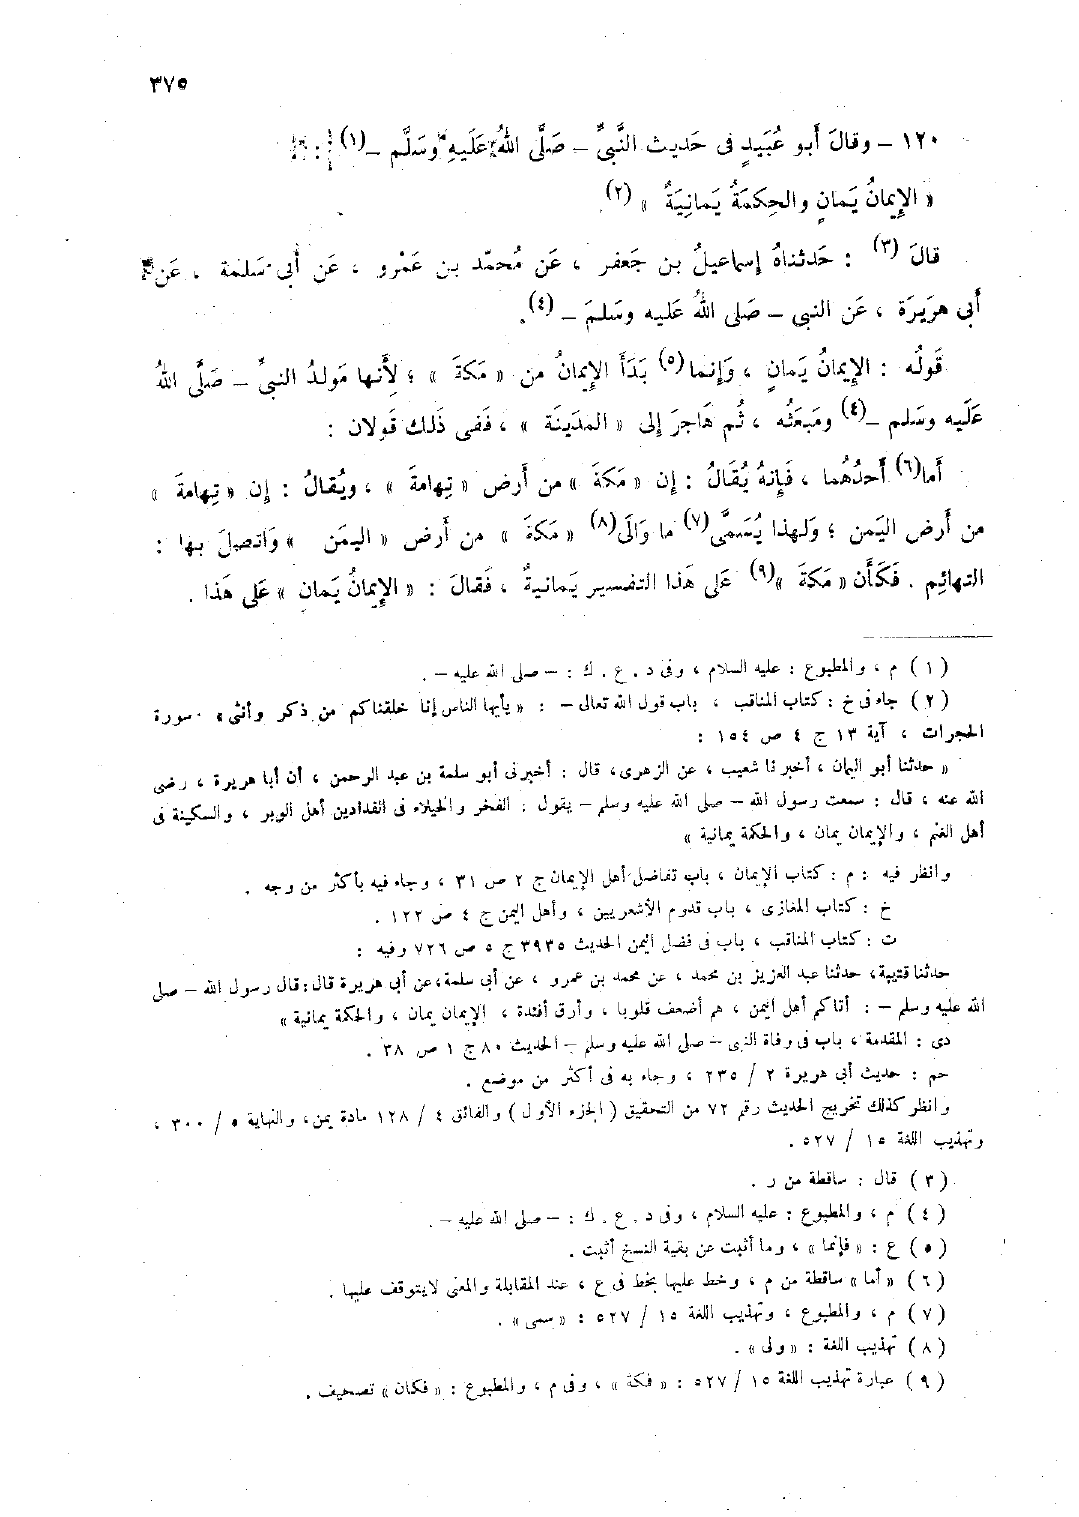 ٣٧٥
١٢٠ – وقالَ أَبو عُبَيدٍ فى حَديث النَّبىِّ – صَلَّى اللهُ عَلَيهِ وسَلَّم –(١) :
« الإِيمانُ يَمانٍ والحِكمَةُ يَمانِيَةٌ » (٢).
قالَ (٣) : حَدثناهُ إِسماعيلُ بن جَعفر ، عَن مُحمّد بن عَمْرو ، عَن أَبى سَلَمة ، عَن
أَبى هرَيَرَة ، عَن النبى – صَلى اللهُ عَليه وسَلمَ – (٤).
قَولُه : الإِيمانُ يَمانٍ ، وَإِنما (٥) بَدَأَ الإِيمانُ من « مَكةَ » ؛ لأَنها مَولدُ النبىِّ – صَلَّى اللهُ
عَلَيه وسَلم –(٤) ومَبعَثُه ، ثُم هَاجرَ إِلى « المدَينَة » ، فَفى ذَلك قَولان :
أَما(٦) أَحدُهُما ، فَإِنهُ يُقَالُ : إِن « مَكةَ » من أَرض « تِهامةَ » ، ويُقالُ : إِن « تِهامةَ »
من أَرض اليَمن ؛ وَلهذا يُسَمَّى (٧) ما وَالَى(٨) « مَكةَ » من أَرض « اليمَن » وَاتصلَ بها :
التهائِم . فَكَأَن « مَكةَ »(٩) عَلى هَذا التفسير يَمانيةٌ ، فَقالَ : « الإِيمانُ يَمانٍ » عَلى هَذا .
(١) م ، والمطبوع : عليه السلام ، وفى د . ع . ك : – صلى الله عليه – .
(٢) جاء فى خ : كتاب المناقب ، باب قول الله تعالى – : « يأيها الناس إنا خلقناكم من ذكر وأنثى » . سورة
الحجرات ، آية ١٣ ج ٤ ص ١٥٤ :
« حدثنا أبو اليمان ، أخبرنا شعيب ، عن الزهرى، قال : أخبرنى أبو سلمة بن عبد الرحمن ، أن أبا هريرة ، رضى
الله عنه ، قال : سمعت رسول الله – صلى الله عليه وسلم – يقول : الفخر والخيلاء فى الفدادين أهل الوبر ، والسكينة فى
أهل الغنم ، والإيمان يمان ، والحكمة يمانية »
وانظر فيه : م : كتاب الإيمان ، باب تفاضل أهل الإيمان ج ٢ ص ٣١ ، وجاء فيه بأكثر من وجه .
خ : كتاب المغازى ، باب قدوم الأشعريين ، وأهل اليمن ج ٤ ص ١٢٢ .
ت : كتاب المناقب ، باب فى فضل اليمن الحديث ٣٩٣٥ ج ٥ ص ٧٢٦ وفيه :
حدثنا قتيبة، حدثنا عبد العزيز بن محمد ، عن محمد بن عمرو ، عن أبى سلمة، عن أبى هريرة قال: قال رسول الله – صلى
الله عليه وسلم – : أتاكم أهل اليمن ، هم أضعف قلوبا ، وأرق أفئدة ، الإيمان يمان ، والحكمة يمانية »
دى : المقدمة ، باب فى وفاة النبى – صلى الله عليه وسلم – الحديث ٨٠ ج ١ ص ٣٨ .
حم : حديث أبى هريرة ٢ / ٢٣٥ ، وجاء به فى أكثر من موضع .
وانظر كذلك تخريج الحديث رقم ٧٢ من التحقيق ( الجزء الأول ) والفائق ٤ / ١٢٨ مادة يمن، والنهاية ٥ / ٣٠٠ ،
وتهذيب اللغة ١٥ / ٥٢٧ .
(٣) قال : ساقطة من ر .
(٤) م ، والمطبوع : عليه السلام ، وفى د . ع . ك : – صلى الله عليه – .
(٥) ع : « فإنما » ، وما أثبت عن بقية النسخ أثبت .
(٦) « أما » ساقطة من م ، وخط عليها بخط فى ع ، عند المقابلة والمعنى لايتوقف عليها .
(٧) م ، والمطبوع ، وتهذيب اللغة ١٥ / ٥٢٧ : « سمى » .
(٨) تهذيب اللغة : « ولى » .
(٩) عبارة تهذيب اللغة ١٥ / ٥٢٧ : « فكة » ، وفى م ، والمطبوع : « فكان » تصحيف .